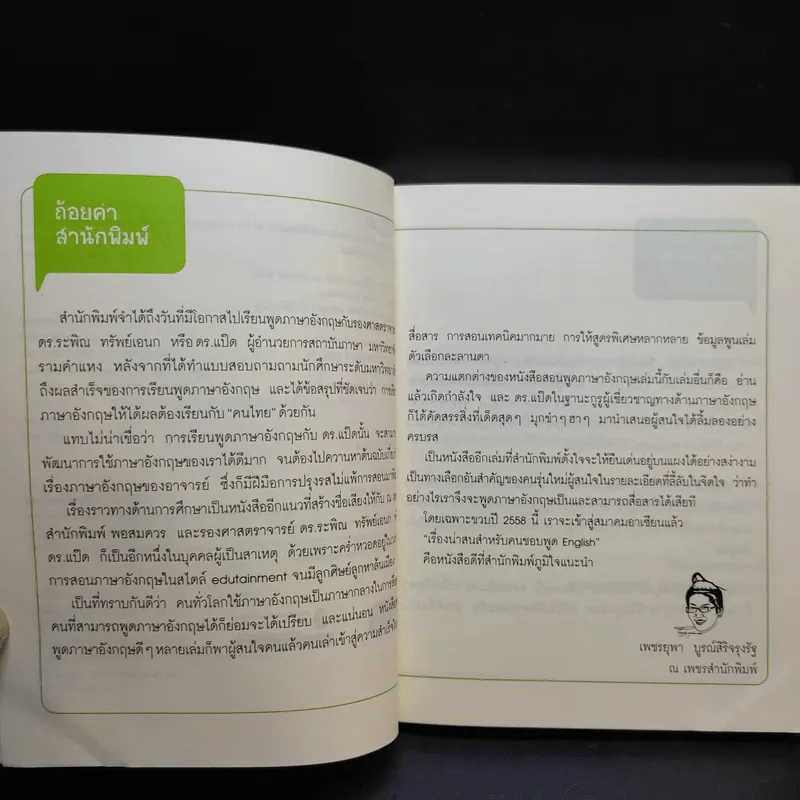 ถ้อยคำ
สำนักพิมพ์
สำนักพิมพ์จำได้ถึงวันที่มีโอกาสไปเรียนพูดภาษาอังกฤษกับรองศาสตราจารย์
ดร.ระพิณ ทรัพย์เอนก หรือ ดร.แป๊ด ผู้อำนวยการสถาบันภาษา มหาวิทยาลัย
รามคำแหง หลังจากที่ได้ทำแบบสอบถามถามนักศึกษาระดับมหาวิทยา
ถึงผลสำเร็จของการเรียนพูดภาษาอังกฤษ และได้ข้อสรุปที่ชัดเจนว่า การเรียน
ภาษาอังกฤษให้ได้ผลต้องเรียนกับ "คนไทย" ด้วยกัน
แทบไม่น่าเชื่อว่า การเรียนพูดภาษาอังกฤษกับ ดร.แป๊ดนั้น จะสามา
พัฒนาการใช้ภาษาอังกฤษของเราได้ดีมาก จนต้องไปควานหาต้นฉบับเกี่ยว
เรื่องภาษาอังกฤษของอาจารย์ ซึ่งก็มีฝีมือการปรุงรสไม่แพ้การสอนมาพิ
เรื่องราวทางด้านการศึกษาเป็นหนังสืออีกแนวที่สร้างชื่อเสียงให้กับ ณ เพ
สำนักพิมพ์ พอสมควร และรองศาสตราจารย์ ดร.ระพิณ ทรัพย์เอนก
ดร.แป๊ด ก็เป็นอีกหนึ่งในบุคคลผู้เป็นสาเหตุ ด้วยเพราะคร่ำหวอดอยู่ใน
การสอนภาษาอังกฤษในสไตล์ edutainment จนมีลูกศิษย์ลูกหาล้นเมือง
เป็นที่ทราบกันดีว่า คนทั่วโลกใช้ภาษาอังกฤษเป็นภาษากลางในการ
คนที่สามารถพูดภาษาอังกฤษได้ก็ย่อมจะได้เปรียบ และแน่นอน หนังสือ
พูดภาษาอังกฤษดีๆ หลายเล่มก็พาผู้สนใจคนแล้วคนเล่าเข้าสู่ความสำเร็จใน
สื่อสาร การสอนเทคนิคมากมาย การให้สูตรพิเศษหลากหลาย ข้อมูลพูนเล่ม
ตัวเลือกละลานตา
ความแตกต่างของหนังสือสอนพูดภาษาอังกฤษเล่มนี้กับเล่มอื่นก็คือ อ่าน
แล้วเกิดกำลังใจ และ ดร.แป๊ดในฐานะกูรูผู้เชี่ยวชาญทางด้านภาษาอังกฤษ
ก็ได้คัดสรรสิ่งที่เด็ดสุดๆ มุกขำๆ ฮาๆ มานำเสนอผู้สนใจได้ลิ้มลองอย่าง
ครบรส
เป็นหนังสืออีกเล่มที่สำนักพิมพ์ตั้งใจจะให้ยืนเด่นอยู่บนแผงได้อย่างสง่างาม
เป็นทางเลือกอันสำคัญของคนรุ่นใหม่ผู้สนใจในรายละเอียดที่ลี้ลับในจิตใจ ว่าทำ
อย่างไรเราจึงจะพูดภาษาอังกฤษเป็นและสามารถสื่อสารได้เสียที
โดยเฉพาะขวบปี 2558 นี้ เราจะเข้าสู่สมาคมอาเซียนแล้ว
"เรื่องน่าสนสำหรับคนชอบพูด English"
คือหนังสือดีที่สำนักพิมพ์ภูมิใจแนะนำ
เพชรยุพา บูรณ์สิริจรุงรัฐ
ณ เพชรสำนักพิมพ์